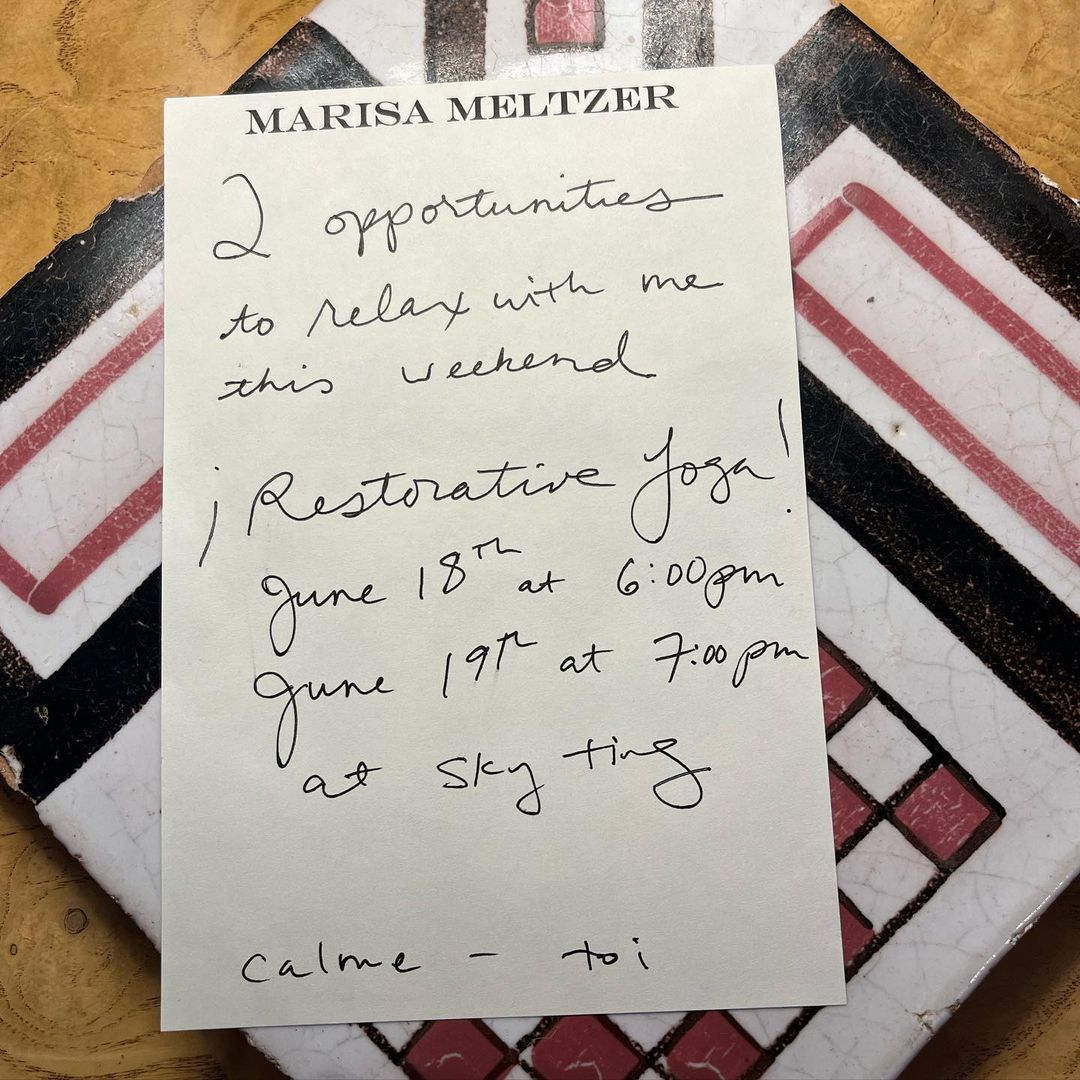 MARISA MELTZER
2 opportunities
to relax with me
this weekend
¡Restorative Yoga!
June 18TH at 6:00pm
June 19TH at 7:00pm
at Sky Ting
calme - toi